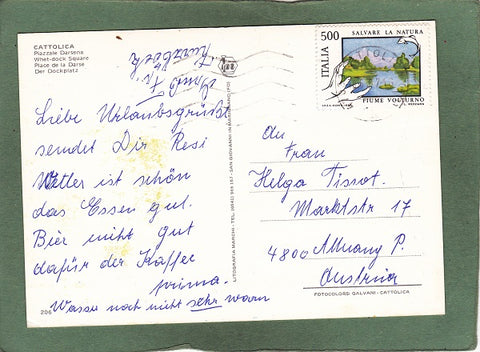 CATTOLICA
Piazzale Darsena
Whet-dock Square
Place de la Darse
Der Dockplatz
Liebe Urlaubsgrüße
sendet Dir Resi
Wetter ist schön
das Essen gut.
Bier nicht gut
dafür der Kaffee
prima.
Wasser noch nicht sehr warm
206
LITOGRAFIA MARCHI - TEL. (0541)
SAN GIOVANNI IN MARIGNANO (FO)
500
ITALIA
SALVARE LA NATURA
FIUME VOLTURNO
An
Frau
Helga Tissot.
Marktstr 17
4800 Attnang P.
Austria
FOTOCOLORS GALVANI - CATTOLICA